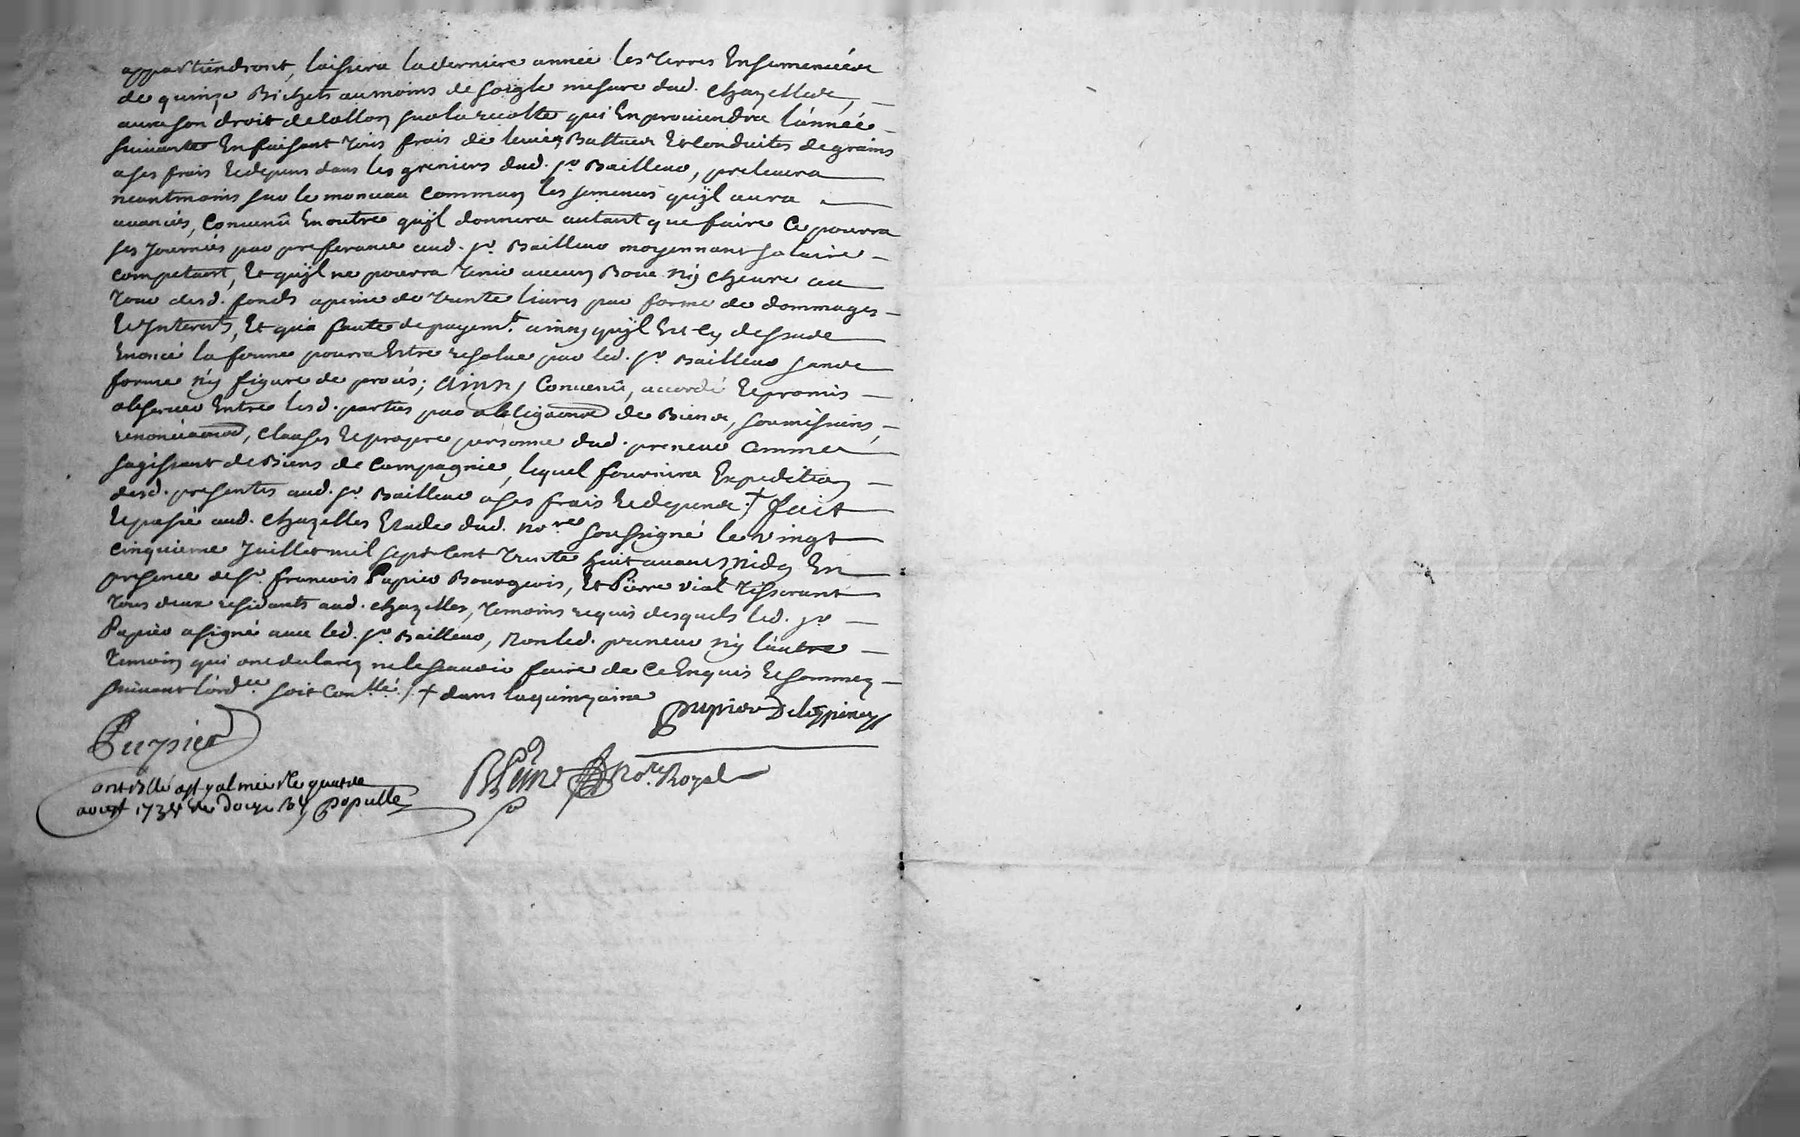 appartiendront, laissera la derniere année les terres Ensemencées
de quinze Bichets au moins de soigle mesure dud. Chazelles, —
aura son droit de collon sur la recolte qui En proviendra l'année —
suivante En faisant tous frais de levée, Batture Et Conduittes de grains
a ses frais Et depens dans les greniers dud. Sr. Bailleur, prelevera
neantmoins sur le monceau commun les semences qu'jl aura —
avancées, Convenû En outre qu'jl donnera autant que faire Ce pourra
ses Journées par preferance aud. Sr. Bailleur moyennant salaire —
competant, Et qu'jl ne pourra tenir aucun Bouc n'y Chevre au
Tour desd. fonds a peine de trente livres par forme de dommages —
Et Jnterets, Et qu'a faute de payemt. ainsy qu'jl Est Cy dessus
Enoncé la ferme pourra Estre resolue par led. Sr. Bailleur sans
forme n'y figure de procés; Ainsy Convenû, accordé Et promis —
observer Entre lesd. parties par obligaõns de Biens, soumissions, —
renonciaõns, Clauses Et propre personne dud. preneur Comme
sagissant de Biens de Compagnie, lequel fournira Expedition —
desd. presentes aud. Sr. Bailleur a ses frais Et depens. + fait
Et passé aud. Chazelles Etude dud. nore. soussigné le vingt
cinquieme Juillet mil sept cent trente huit avant midy En
presence de Sr. francois Pupier Bourgeois, Et Pierre vial Tisserant
Tous deux residants aud. Chazelles, temoins requis desquels led. Sr. —
Pupier a signé avec led. Sr. Bailleur, Non led. preneur n'y l'autre —
Temoin qui ont declaré ne le scavoir faire de Ce Enquis Et sommez —
suivant l'ordce. soit Contllé. /. + dans la quinzaine
Pupier Delespinez
Pupier
nore. Royal
Contrllé a st galmier le quatre
aoust 1738 Re douze s. Populle